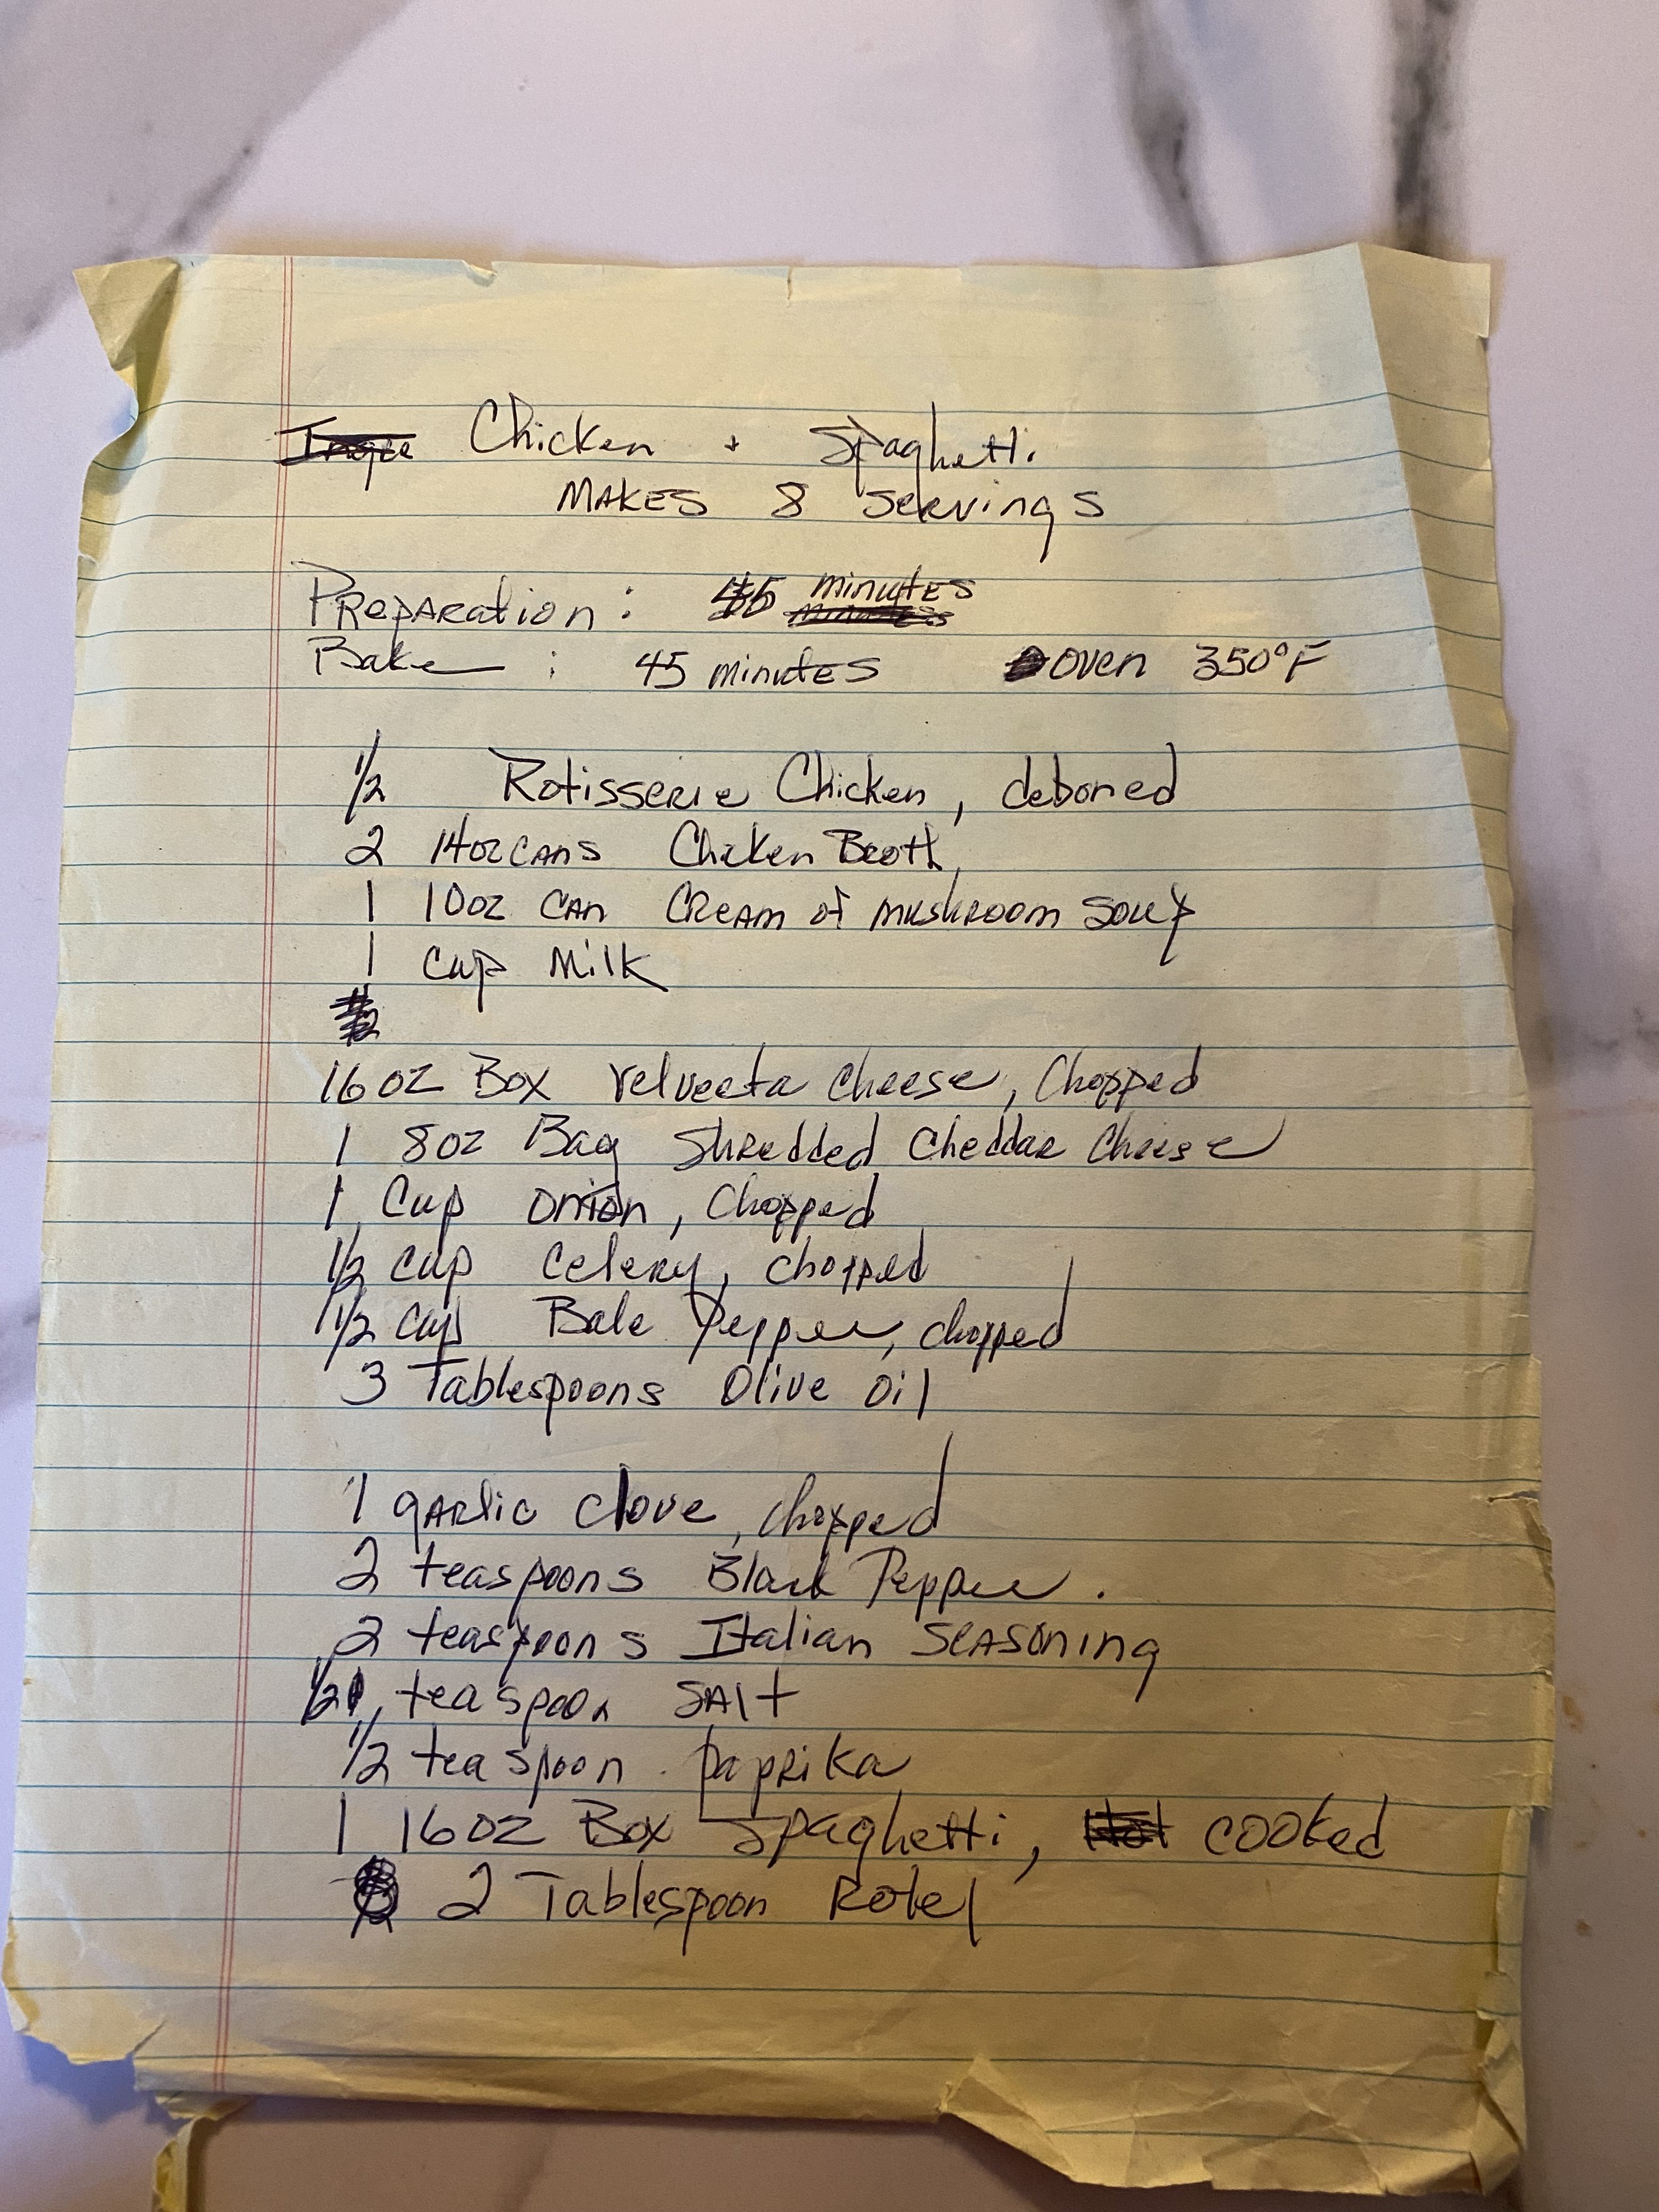 Chicken + Spaghetti
MAKES 8 Servings
Preparation: minutes
Bake : 45 minutes Oven 350°F
1/2 Rotisserie Chicken, deboned
2 14oz cans Chicken Broth
1 10oz can Cream of mushroom soup
1 cup Milk
16 oz Box Velveeta Cheese, Chopped
1 8oz Bag Shredded Cheddar Cheese
1 Cup onion, Chopped
1/2 cup Celery, chopped
1/2 cup Bale Pepper, chopped
3 Tablespoons Olive oil
1 garlic clove, chopped
2 teaspoons Black Pepper.
2 teaspoons Italian Seasoning
1/2 teaspoon SAlt
1/2 teaspoon paprika
1 16oz Box Spaghetti, cooked
2 Tablespoon Rotel